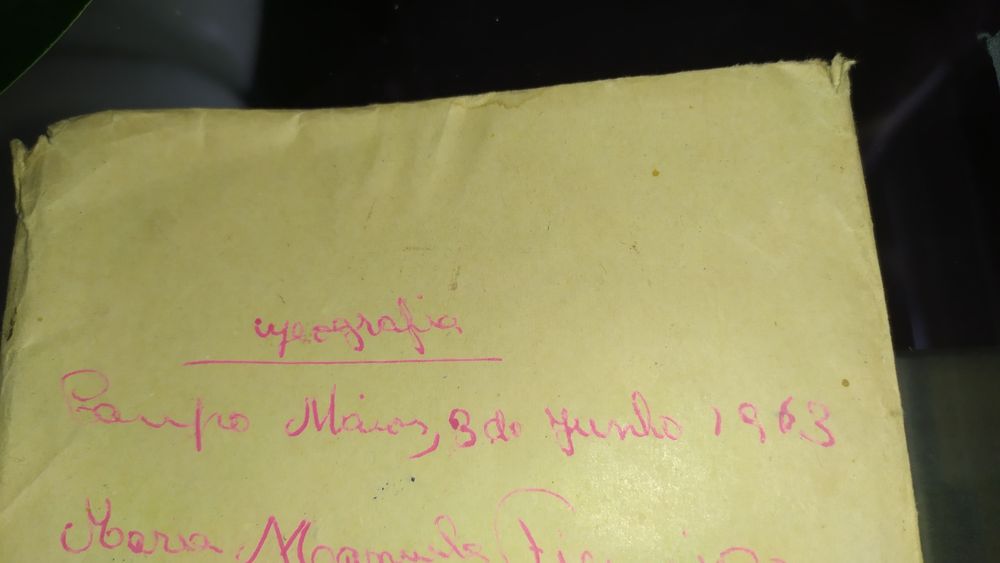 Geografia
Campo Maior, 3 de Junho 1963
Maria Manuela